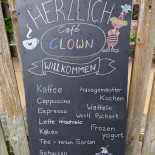 HERZLICH
Café
CLOWN
WILLKOMMEN
Kaffee
Cappuccino
Espresso
Latte macchiato
Kakao
Tee - versch. Sorten
hausgemachter
Kuchen
Waffeln
Frozen
yogurt